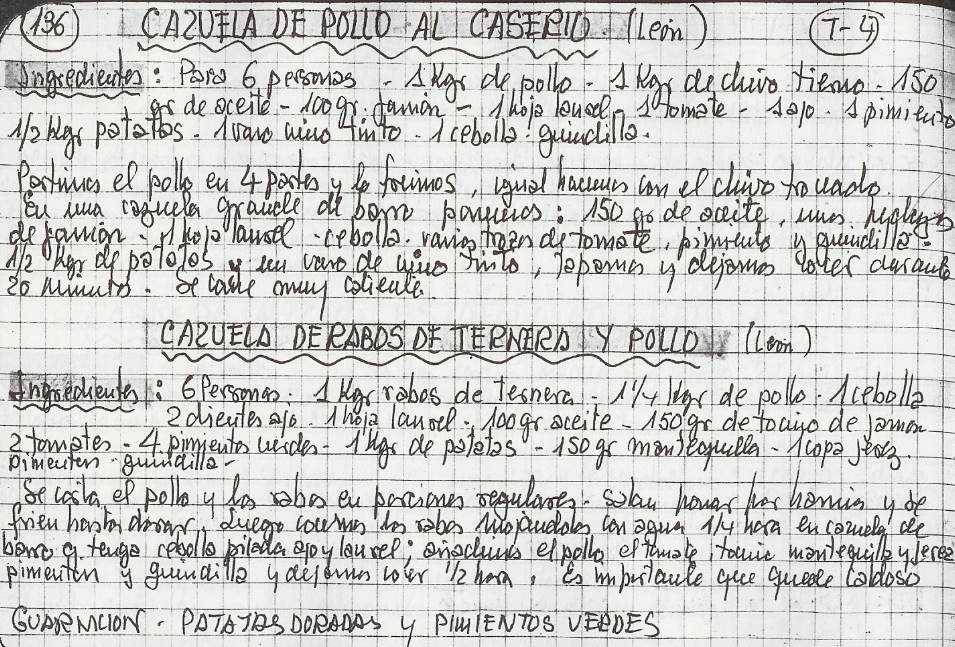 136 CAZUELA DE POLLO AL CASERIO. (León) T-4
Ingredientes: Para 6 personas - 1 Kgr de pollo - 1 Kgr de chivo tierno - 150
gr de aceite - 100 gr. jamón - 1 hoja laurel - 1 tomate - 1 ajo - 1 pimiento
1/2 Kgr patatas - 1 vaso vino tinto - 1 cebolla - guindilla.
Partimos el pollo en 4 partes y lo freimos, igual hacemos con el chivo troceado.
En una cazuela grande de barro ponemos: 150 gr de aceite, unos
de jamón - 1 hoja laurel - cebolla - varios trozos de tomate, pimiento y guindilla -
1/2 Kgr de patatas y un vaso de vino tinto, tapamos y dejamos cocer durante
20 minutos. Se come muy caliente.
CAZUELA DE RABOS DE TERNERA Y POLLO. (León)
Ingredientes: 6 Personas. 1 Kgr rabos de ternera - 1 1/4 Kgr de pollo - 1 cebolla
2 dientes ajo - 1 hoja laurel - 100 gr aceite - 150 gr de tocino de jamon
2 tomates - 4 pimientos verdes - 1 Kgr de patatas - 150 gr mantequilla - 1 copa jerez.
pimenton - guindilla -
Se corta el pollo y los rabos en porciones regulares - y se
frien hasta dorar, luego cocemos los rabos mojandolos con agua 1/4 hora en cazuela de
barro q. tenga cebolla picada ajo y laurel; añadimos el pollo el tomate tocino mantequilla y jerez
pimenton y guindilla y dejamos cocer 1/2 hora. Es importante que quede caldoso
GUARNICION - PATATAS DORADAS Y PIMIENTOS VERDES